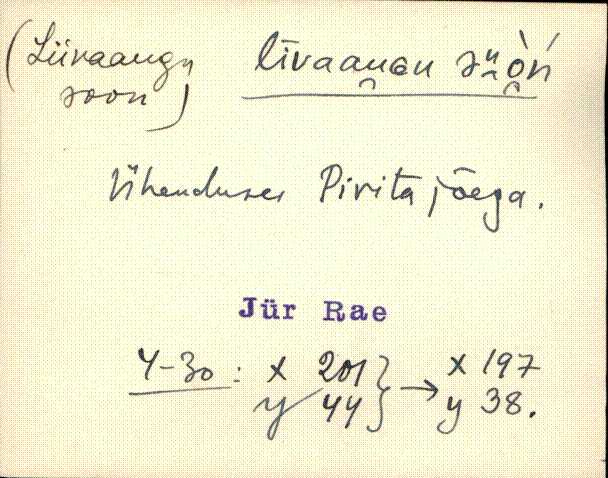 (Liivaaugu līvaaugu
soon)
Ühenduses Pirita jõega.
Jür Rae
4-30: x 201 } → x 197
y 44 y 38.